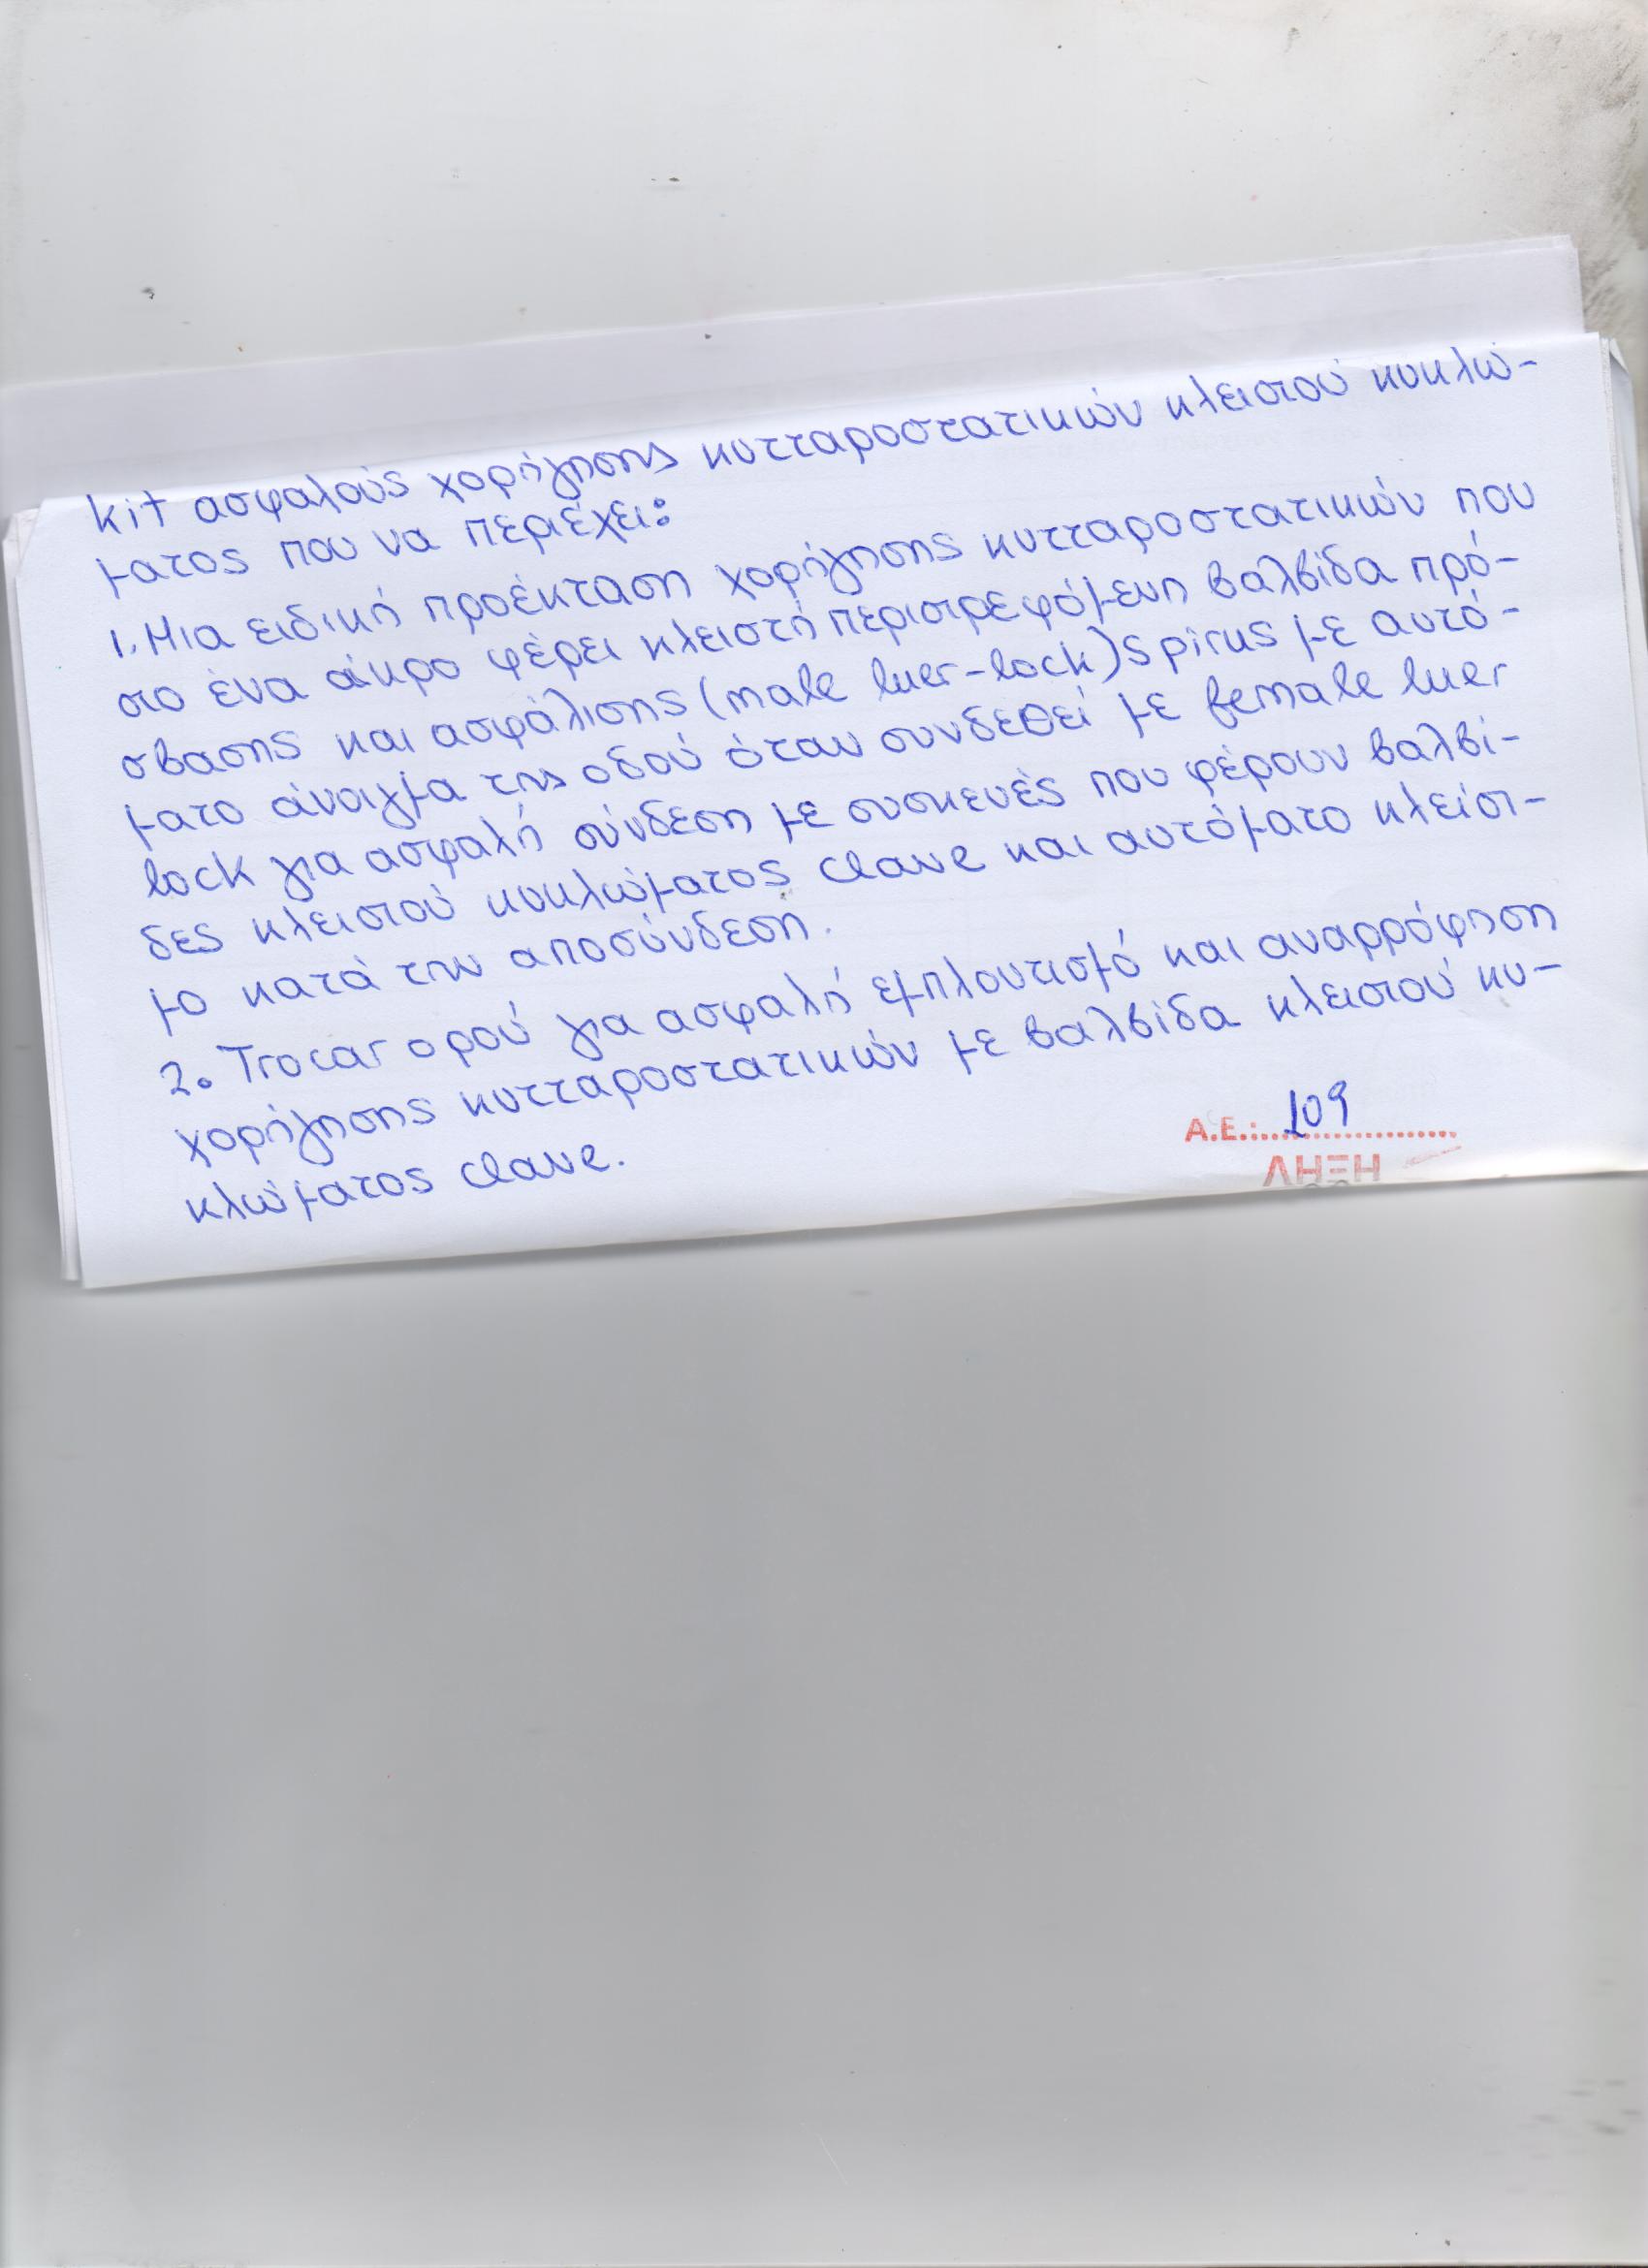 kit ασφαλούς χορήγησης κυτταροστατικών κλειστού κυκλώ-
ματος που να περιέχει:
1. Μια ειδική προέκταση χορήγησης κυτταροστατικών που
στο ένα άκρο φέρει κλειστή περιστρεφόμενη βαλβίδα πρό-
σβασης και ασφάλισης (male luer-lock) spirus με αυτό-
ματο άνοιγμα της οδού όταν συνδεθεί με female luer
lock για ασφαλή σύνδεση με συσκευές που φέρουν βαλβί-
δες κλειστού κυκλώματος clave και αυτόματο κλείσι-
μο κατά την αποσύνδεση.
2. Trocar ορού για ασφαλή εμπλουτισμό και αναρρόφηση
χορήγησης κυτταροστατικών με βαλβίδα κλειστού κυ-
κλώματος clave.
Α.Ε.: 109
ΛΗΞΗ